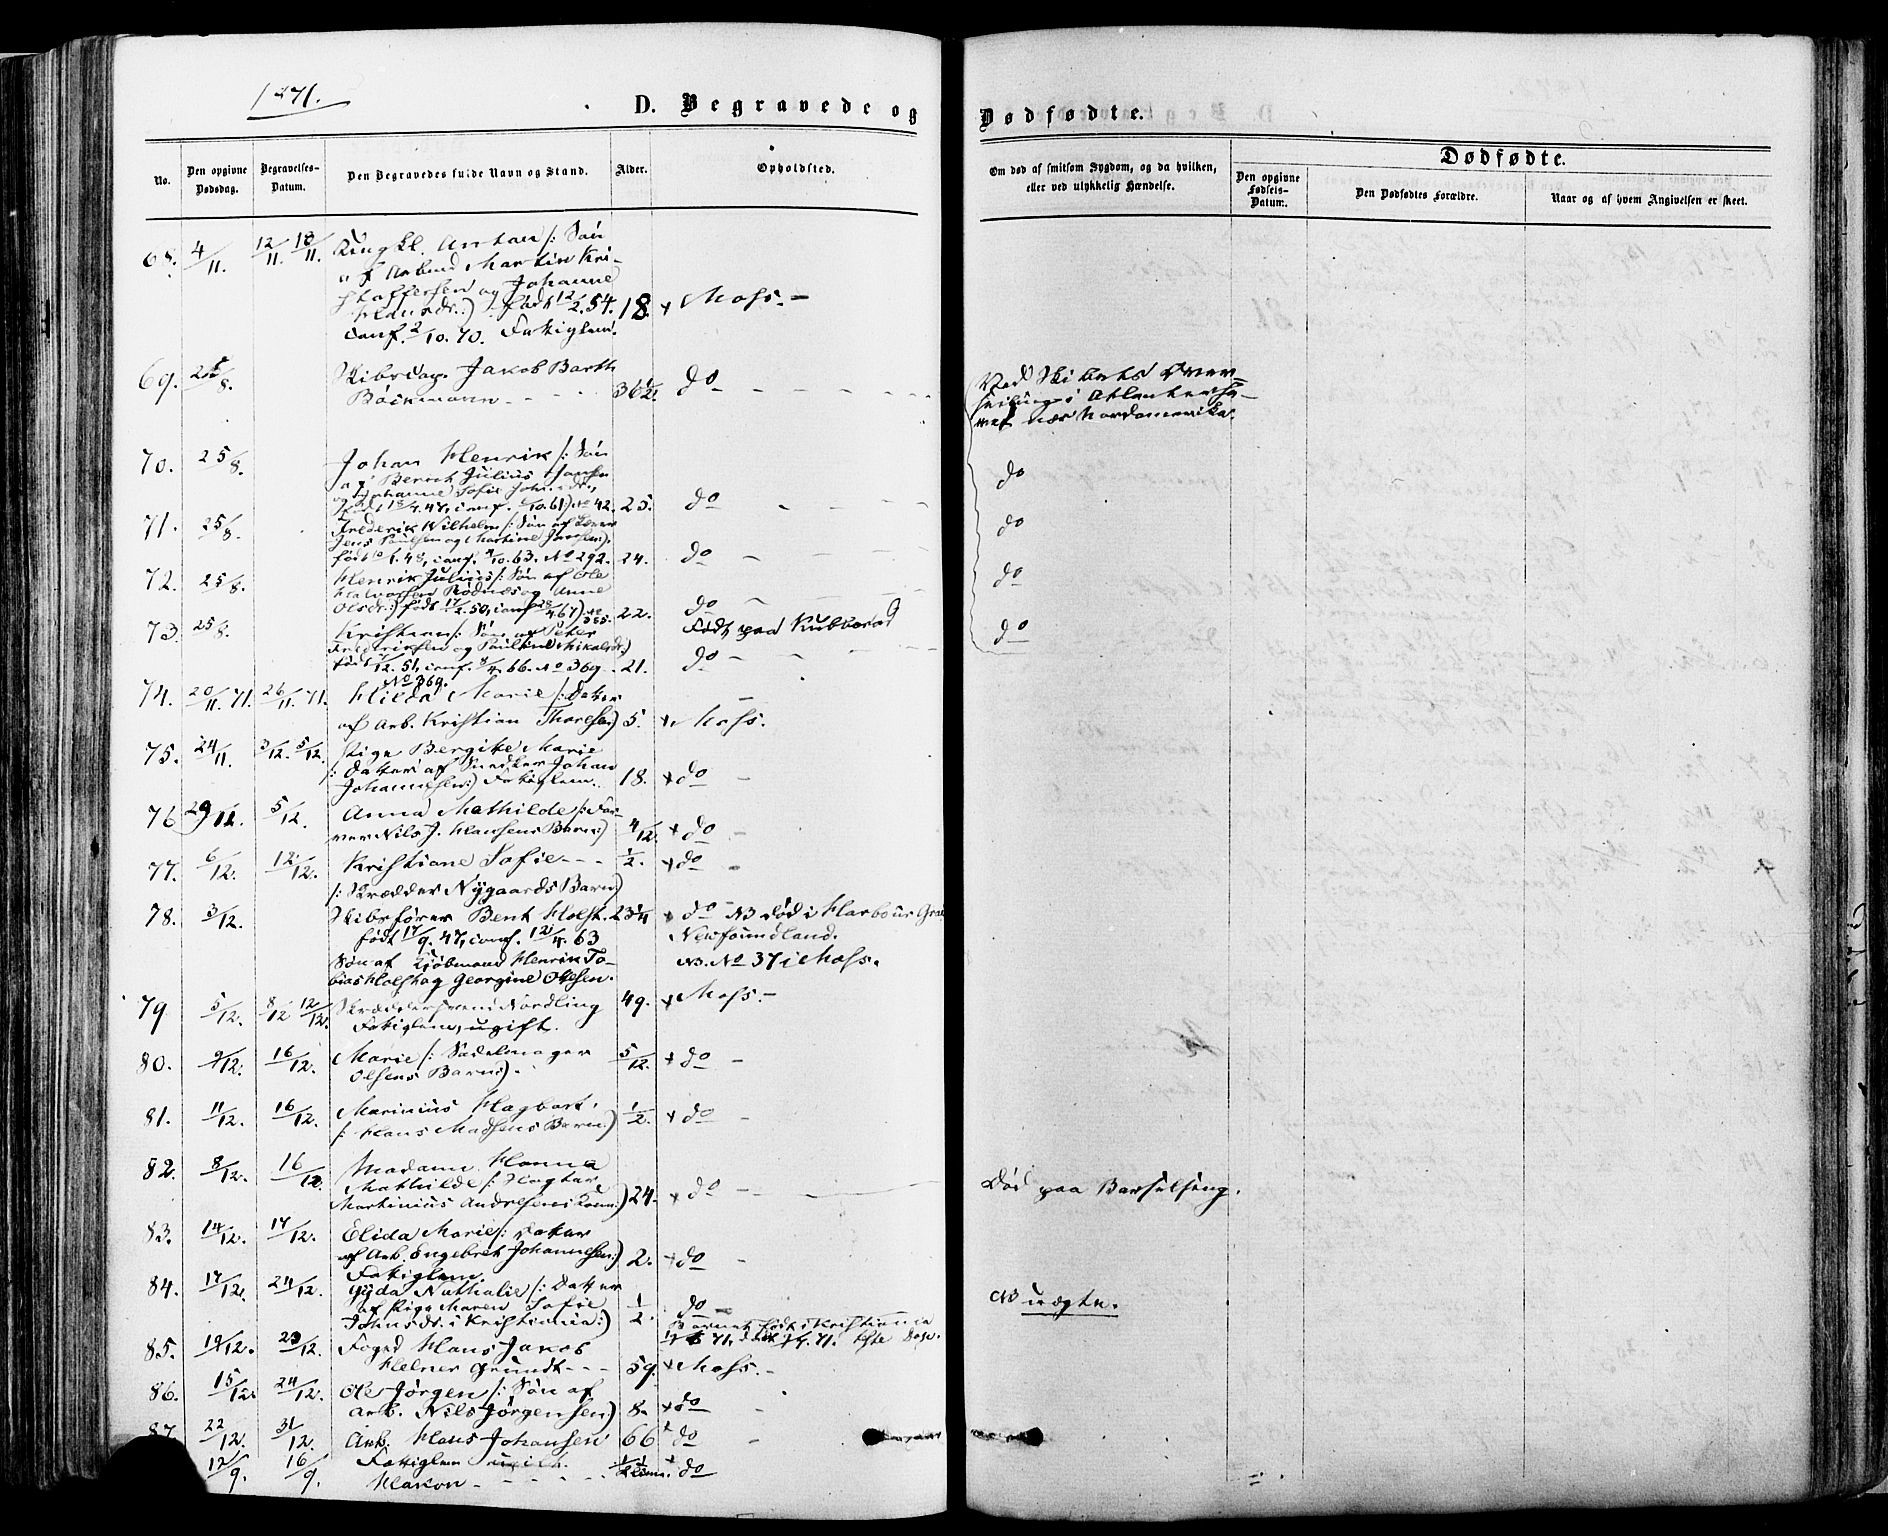 1871.
D. Begravede og
Dødfødte.
No.
Den opgivne Dødsdag.
Begravelses-Datum.
Den Begravedes fulde Navn og Stand.
Alder.
Opholdsted.
Om død af smitsom Sygdom, og da hvilken,
eller ved ulykkelig Hændelse.
Dødfødte.
Den opgivne Fødsels-Datum.
Den Dødfødtes Forældre.
Naar og af hvem Angivelsen er skeet.
68. 4/11. 12/11. 18/11. Ungkl. Anton /: Søn
af Arbmd Martin Kri-
stoffersen og Johanne
Hansdr.:) født 12/2.54. 18. + Moss. —
conf. 2/10.70. Fattiglem.
69. 25/8. Skibsdag. Jakob Barth
Böckmann - - 36 1/2. do
Ved Skibets
i Atlanterha-
vet nær Nordamerika.
70. 25/8. Johan Henrik /: Søn
af Bernt Julius Jansen
og Johanne Sofie
No 42. 25. do do
71. 25/8. Frederik Wilhelm /: Søn af
Jens Paulsen og Martine Jansen:)
conf. 4/10.63. No 292. 24. do do
72. 25/8. Henrik Julius /: Søn af Ole
Halvorsen Rødnes og Anne
Olsdr.:) født 17/2.50, conf. 22. do do
73. 25/8. Kristian /: Søn af Peter Født paa Kubberød
Fredriksen og Pauline Mikalsdr.:)
12.51, conf. 8/4.66. No 369. 21. do do
No 369.
74. 20/11.71. 26/11.71. Hilda Marie /: Datter
af Arb. Kristian Thoresen:) 5. + Moss.
75. 24/11. 3/12. 5/12. Pige Bergite Marie
/: Datter af Snedker Johan
Johannesen:) Fattiglem. 18. + do
76. 29/12. 5/12. Anna Mathilde /: Far-
ver Nils J. Hansens Barn:) 4/12. + do
77. 6/12. 12/12. Kristiane Sofie - - - 1/2. + do
/: Skrædder Nygaards Barn:)
78. 3/12. Skibsfører Bent Holst. 23 1/4 + do NB død i Harbour Gra
født 17/9.47, conf. 12/4.63 Newfoundland.
Søn af Kjøbmand Henrik To- NB. No 37 i Moss.
bias Holst og Georgine Olsen.
79 5/12. 8/12 12/12. Skræddersvend Nordling 49. + Moss. —
Fattiglem, ugift.
80. 9/12. 16/12. Marie /: Sadelmager 5/12. + do
Olsens Barn:).
81. 11/12. 16/12. Marinius Hagbart. 1/2. + do
/: Hans Madsens Barn:)
82. 8/12. 16/12. Madame Hanna
Mathilde /:
Martinius Andresens Kone:) 24. + do Død paa Barselseng.
83. 14/12. 17/12. Elida Marie /: Datter
af Arb. Engebret Johannesen:) 2. + do
Fattiglem.
84. 17/12. 24/12. Gyda Nathalie /: Datter
af Pige Maren Sofie
Johnsdr. i Kristiania:) 1/2. do NB uægte.
Barnet født i Kristiania
71.
85. 19/12. 23/12. Foged Hans Jakob
Helner Grundt - - - 59. + Moss. —
86. 15/12. 24/12. Ole Jørgen /: Søn af
Arb. Nils Jørgensen:) 8. + do
87. 22/12. 31/12. Arb. Hans Johansen 66 + do
Fattiglem
12/9. 16/9. Hakon - - + do